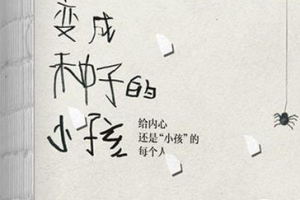 变成
种子的
小孩
给内心
还是“小孩”的
每个人